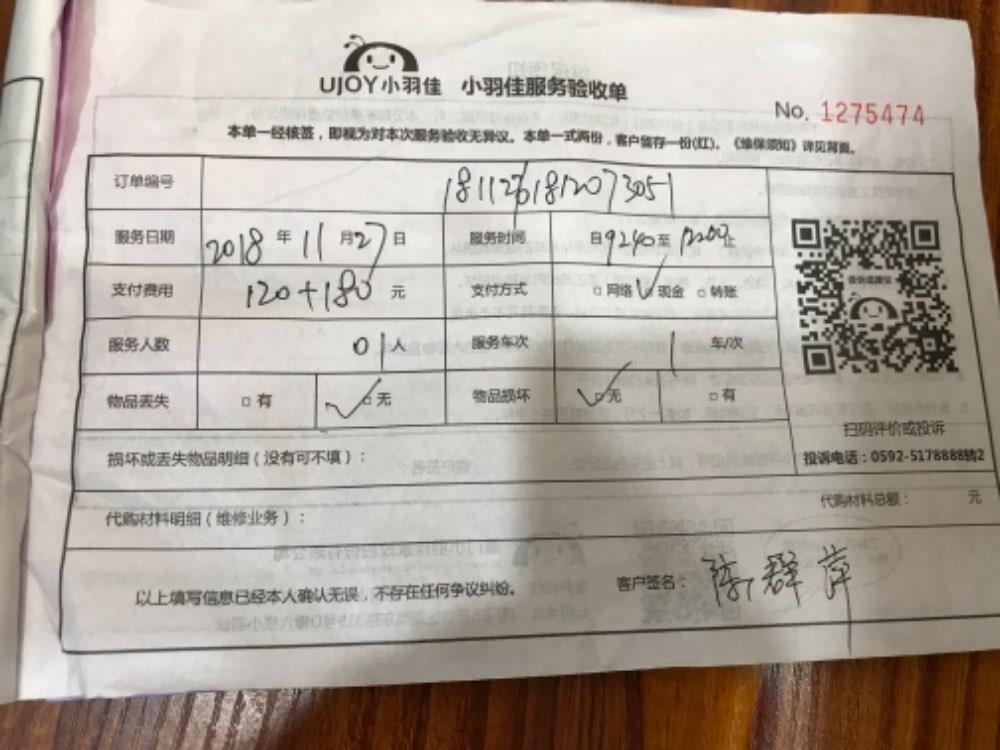 UJOY小羽佳 小羽佳服务验收单
No. 1275474
本单一经核签，即视为对本次服务验收无异议。本单一式两份，客户留存一份(红)。《维保须知》详见背面。
订单编号 1811261812073051
服务日期 2018 年 11 月 27 日 服务时间 自 9:40 至 12:00 止
支付费用 120+180 元 支付方式 □ 网络 ✓ 现金 □ 转账
服务人数 0 人 服务车次 1 车/次
物品丢失 □ 有 ✓□ 无 物品损坏 ✓□ 无 □ 有
扫码评价或投诉
损坏或丢失物品明细（没有可不填）：
投诉电话：0592-5178888转2
代购材料总额： 元
代购材料明细（维修业务）：
以上填写信息已经本人确认无误，不存在任何争议纠纷。 客户签名： 陈群萍